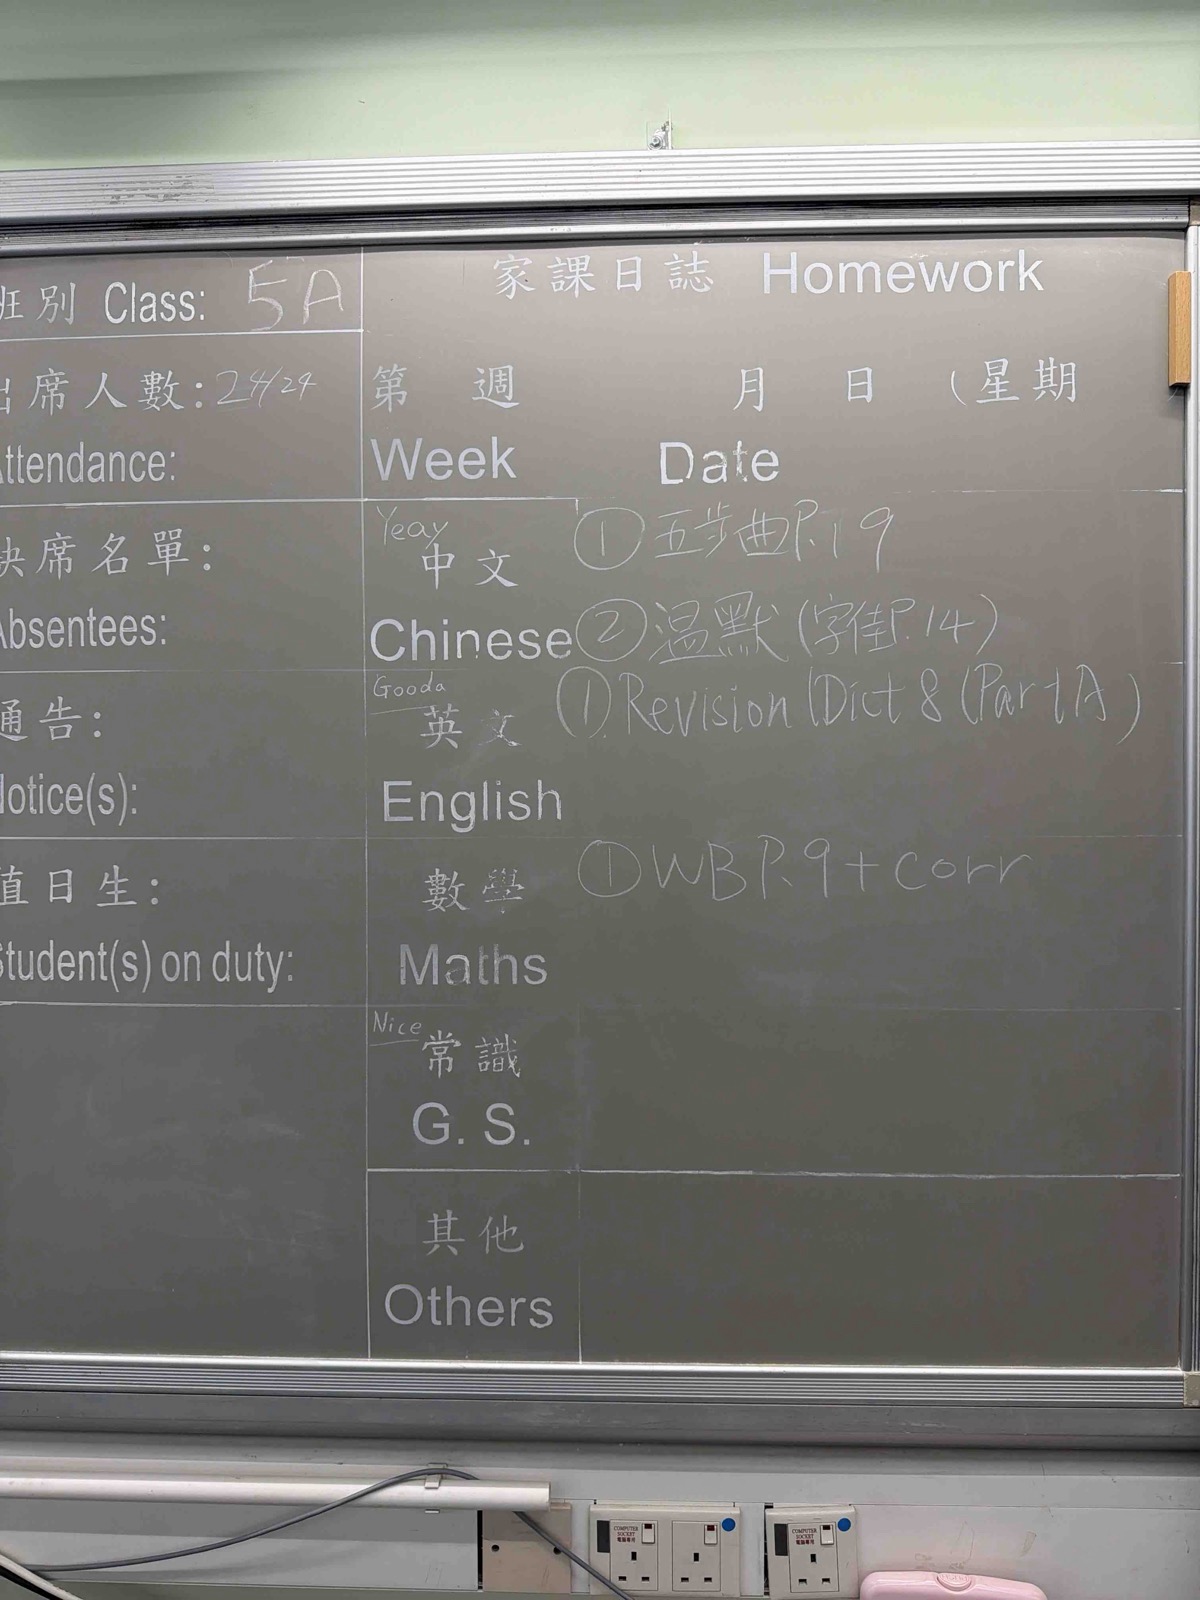 班別 Class: 5A
出席人數: 24/24
Attendance:
缺席名單:
Absentees:
通告:
Notice(s):
值日生:
Student(s) on duty:
家課日誌 Homework
第 週 月 日 (星期
Week Date
Yeay
中文 ① 五步曲P.19
Chinese ② 温默 (字佳P.14)
Gooda
英文 ① Revision (Dict 8 (Part A)
English
數學 ① WB P.9 + corr
Maths
Nice
常識
G. S.
其他
Others
COMPUTER SOCKET
電腦專用
COMPUTER SOCKET
電腦專用